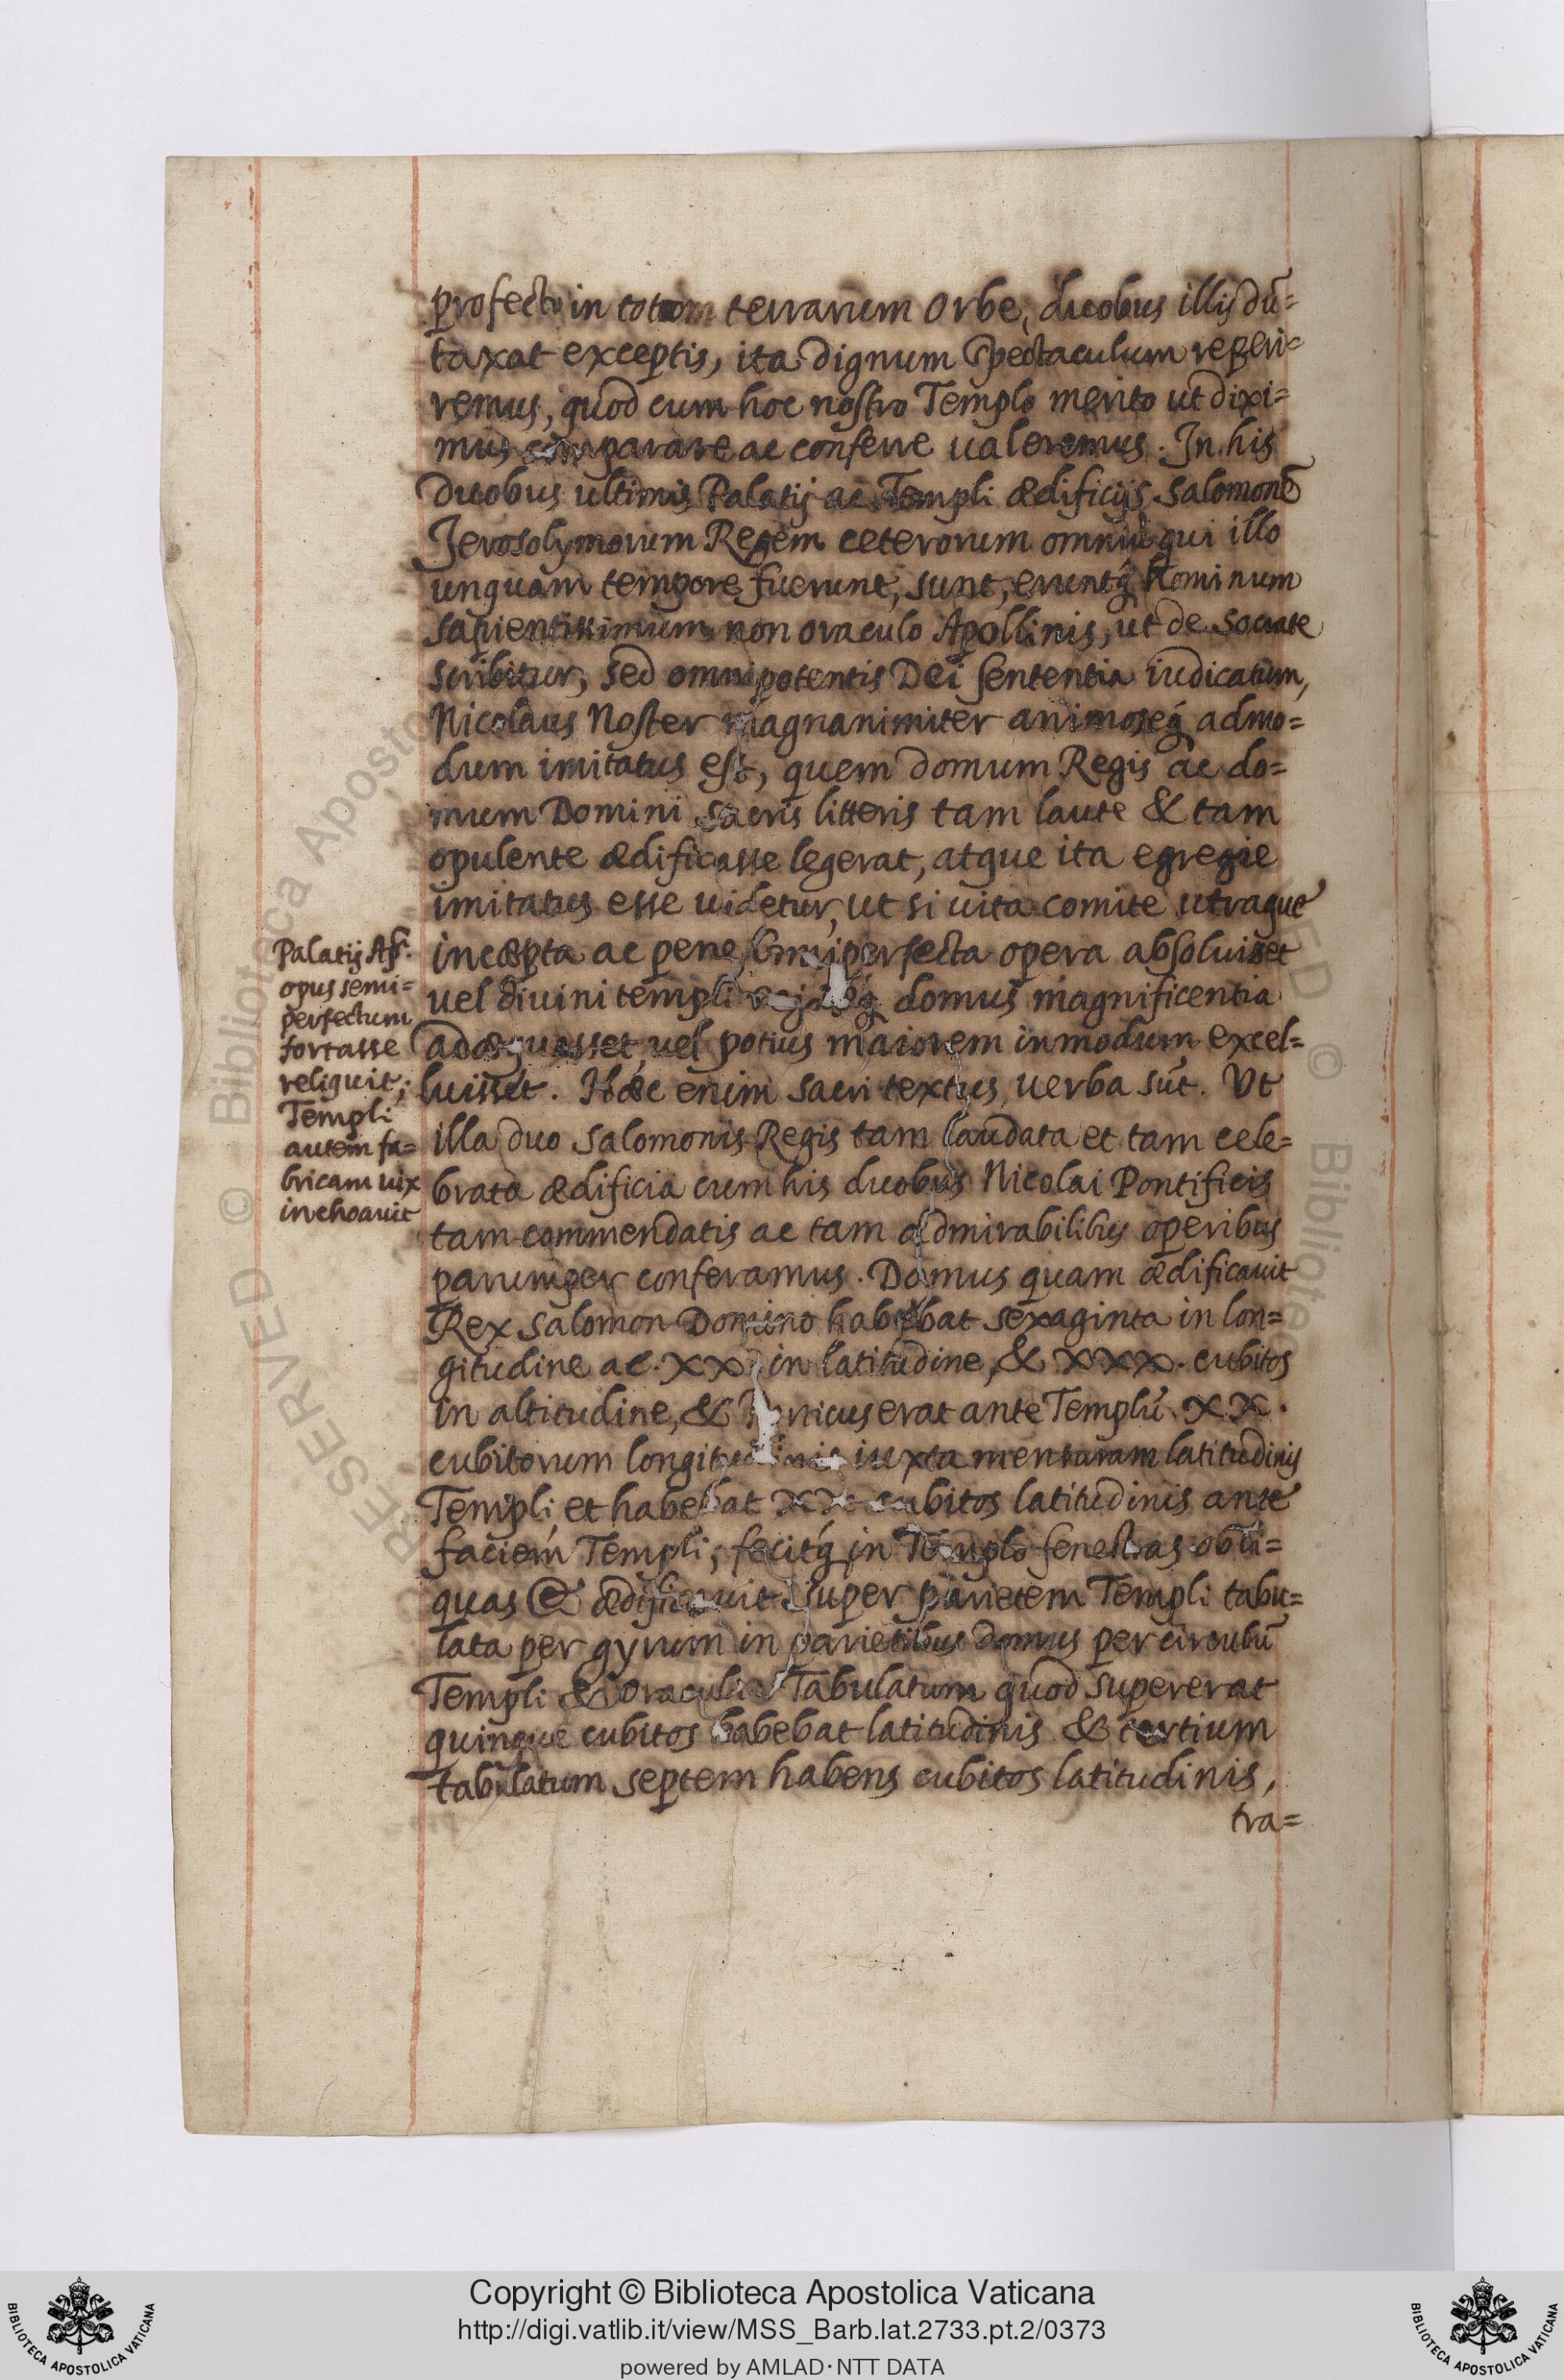 profecto in totom terrarum Orbe, duobus illis dū=
taxat exceptis, ita dignum spectaculum reperi=
remus, quod cum hoc nostro Templo merito ut dixi=
mus comparare ac conferre ualeremus. In his
duobus ultimis Palatij ac Templi ædificijs Salomonē
Jerosolymorum Regem ceterorum omniū qui illo
unquam tempore fuerunt, sunt, eruntq́ Hominum
sapientissimum non oraculo Apollinis, ut de Socrate
scribitur, sed omnipotentis Dei sententia iudicatum,
Nicolaus Noster magnanimiter animoseq́ admo=
dum imitatus est, quem domum Regis ac do=
mum Domini sacris litteris tam laute & tam
opulente ædificasse legerat, atque ita egregie
imitatus esse uidetur, ut si uita comite utraque
incæpta ac pene semiperfecta opera absoluisset
uel diuini templi domus magnificentia
adæquasset, uel potius maiorem inmodum excel=
luisset. Hæc enim sacri textus uerba sūt. Vt
illa duo Salomonis Regis tam laudata et tam cele=
brata ædificia cum his duobus Nicolai Pontificis
tam commendatis ac tam admirabilibus operibus
parumper conferamus. Domus quam ædificauit
Rex Salomon Domino habebat sexaginta in lon=
gitudine ac. XX. in latitudine, & XXX. cubitos
in altitudine, & Porticus erat ante Templū XX.
cubitorum longitudinis iuxta mensuram latitudinis
Templi et habebat XX cubitos latitudinis ante
faciem Templi; fecitq́ in Templo fenestras obli=
quas & ædificauit super parietem Templi tabu=
lata per gyrum in parietibus domus per circulū
Templi & Oraculi Tabulatum quod supererat
quinque cubitos habebat latitudinis & tertium
tabulatum septem habens cubitos latitudinis,
tra=
Palatij Ap.
opus semi=
perfectum
fortasse
reliquit;
Templi
autem fa=
bricam uix
inchoauit
© Biblioteca Aposto
RESERVED
ED © Bibliotec
BIBLIOTECA APOSTOLICA VATICANA
Copyright © Biblioteca Apostolica Vaticana
http://digi.vatlib.it/view/MSS_Barb.lat.2733.pt.2/0373
powered by AMLAD·NTT DATA
BIBLIOTECA APOSTOLICA VATICANA